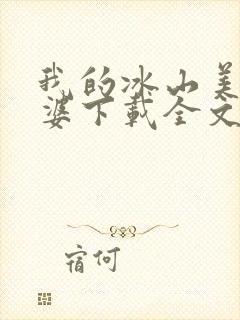 我的冰山美
婆下载全文
宿何